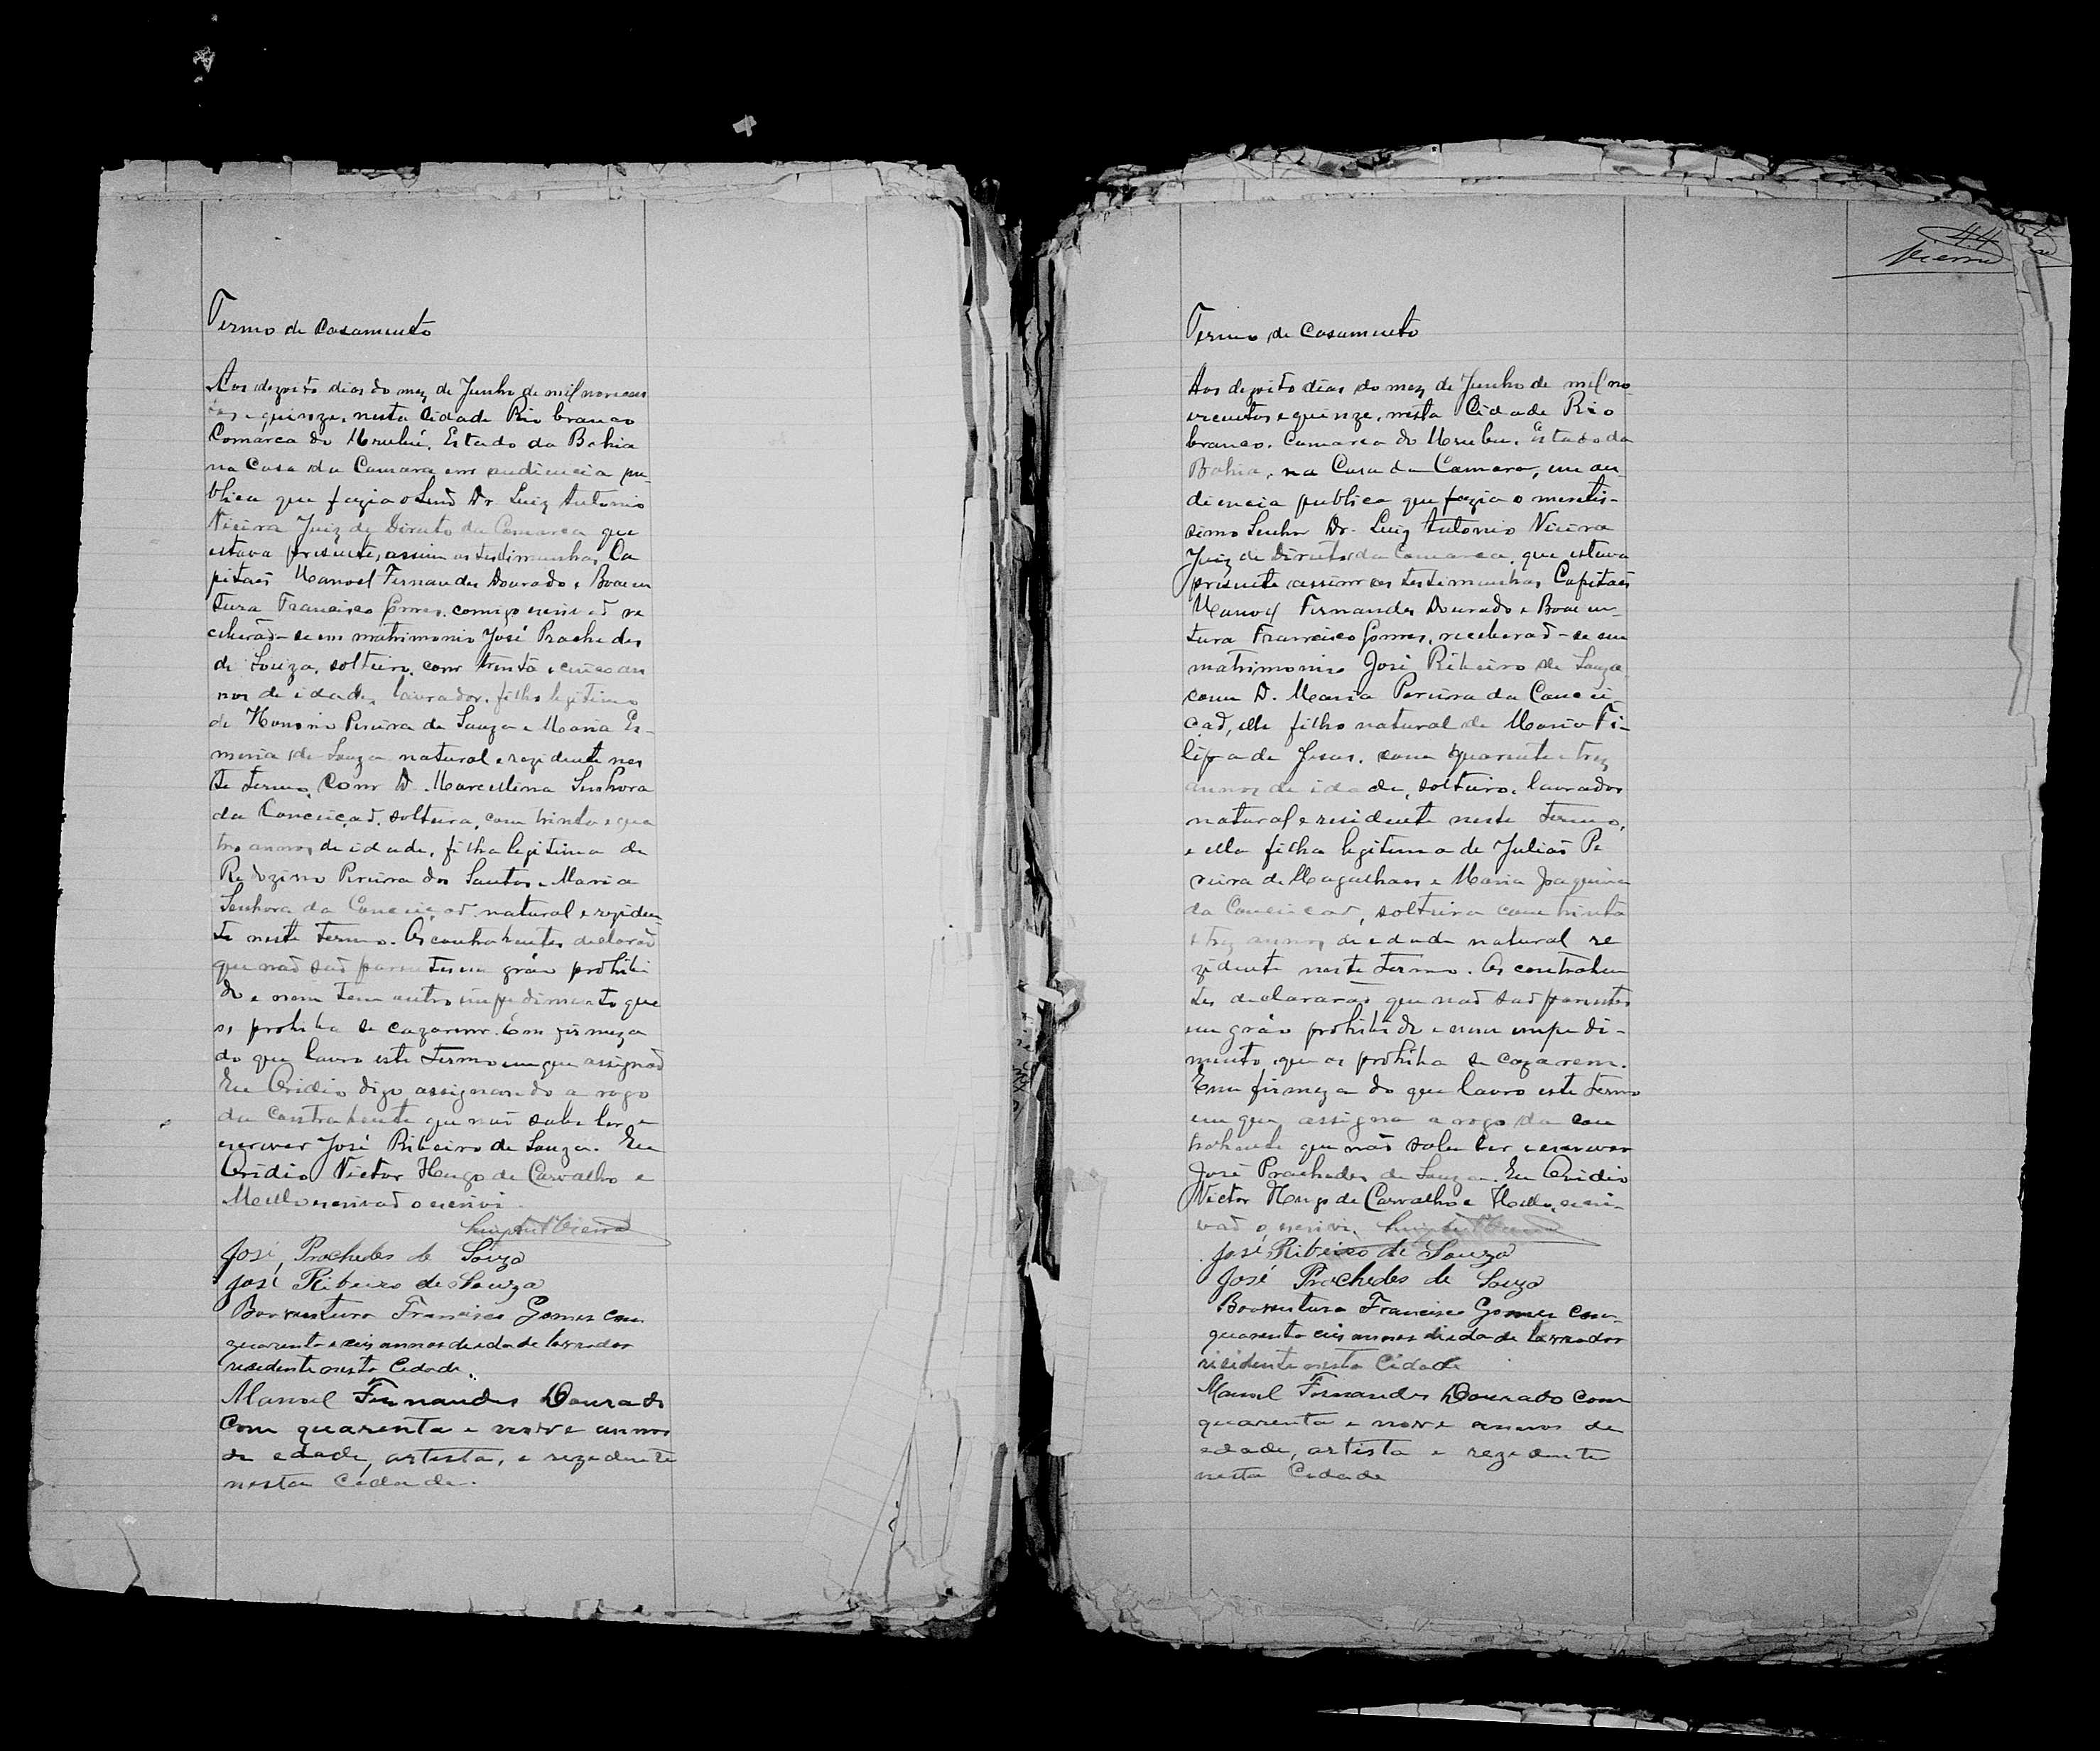 Termo de Casamento
Aos dezoito dias do mez de Junho de mil novecen
tos e quinze, nesta Cidade Rio branco
Comarca do Urubú, Estado da Bahia
na Casa da Camara em audiencia pu-
blica que fazia o Dr. Luiz Antonio
Vieira Juiz de Direito da Comarca que
estava presente, assim as testimunhas Ca
pitaõ Manoel Fernandes Dourado e Boaven
tura Francisco Gomes, comigo escrivaõ re
ceberaõ-se em matrimonio José Prachedes
de Souza, solteiro, com trinta e cinco an
nos de idade, lavrador, filho legitimo
de Honorio Pereira de Souza e Maria Es-
meria de Souza natural e rezidente nes
te termo, com D. Marcellina Senhora
da Conceiçaõ, solteira, com trinta e qua
tro annos de idade, filha legitima de
Redozino Pereira dos Santos e Maria
Senhora da Conceiçaõ natural e reziden
te neste termo. Os contrahentes declaraõ
que naõ saõ parentes em gráo prohibi
do e nem tem outro impedimento que
os prohiba se cazarem. Em firmeza
do que lavro este termo em que assignaõ
Eu Ovidio digo assignando a rogo
da contrahente que naõ sabe ler e
escrever José Ribeiro de Souza. Eu
Ovidio Victor Hugo de Carvalho e
Mello escrivaõ o escrivi.
Luiz Ant Vieira
José Prachedes de Souza
José Ribeiro de Souza
Boaventura Francisco Gomes com
quarenta e seis annos de idade lavrador
residente nesta Cidade.
Manoel Fernandes Dourado
com quarenta e nove annos
de edade, artista, e rezedente
nesta Cedade.
44
Vieira
Termo de Casamento
Aos dezoito dias do mez de Junho de mil no-
vecentos e quinze, nesta Cidade Rio
branco, Comarca do Urubu, Estado da
Bahia, na Casa da Camara, em au-
diencia publica que fazia o meretis-
simo Senhor Dr. Luiz Antonio Vieira
Juiz de Direito da Comarca, que estava
presente assim as testimunhas Capitaõ
Manoel Fernandes Dourado e Boaven-
tura Francisco Gomes, receberaõ-se em
matrimonio José Ribeiro de Souza
com D. Maria Pereira da Concei
çaõ, elle filho natural de Maria Fi-
lipa de Jesus, com quarenta e trez
annos de idade, solteiro, lavrador
natural e residente neste termo,
e ella filha legitima de Juliaõ Pe
reira de Magalhaes e Maria Joaquina
da Conceicaõ, solteira com trinta
e trez annos de edade natural re
zidente neste termo. Os contrahen
tes declararaõ que naõ saõ parentes
em gráo prohibido e nem impedi-
mento que os prohiba se cazarem.
Em firmeza do que lavro este termo
em que assigna a rogo da con
trahente que naõ sabe ler e escrever
José Prachedes de Souza. Eu Ovidio
Victor Hugo de Carvalho e Mello, escri-
vaõ o escrivi. Luiz Ant Vieira
José Ribeiro de Souza
José Prachedes de Souza
Boaventura Francisco Gomes com
quarenta e seis annos de idade lavrador
risidente nesta Cidade
Manoel Fernandes Dourado com
quarenta e nove annos de
edade, artista e rezedente
nesta Cedade